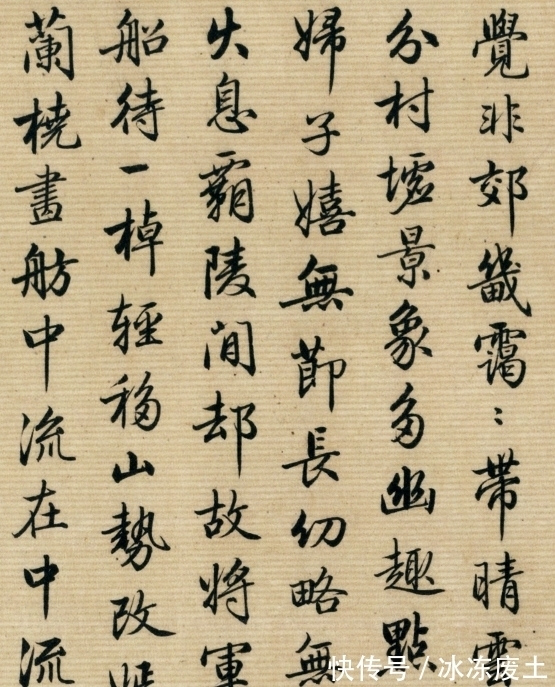 覺非郊畿靄〻帶晴雲
分村墟景象多幽趣點
婦子嬉無節長幼略無
火息霸陵间却故将軍
船待一棹輕移山勢改
蘭橈畫舫中流在中流
快传号／冰冻废土